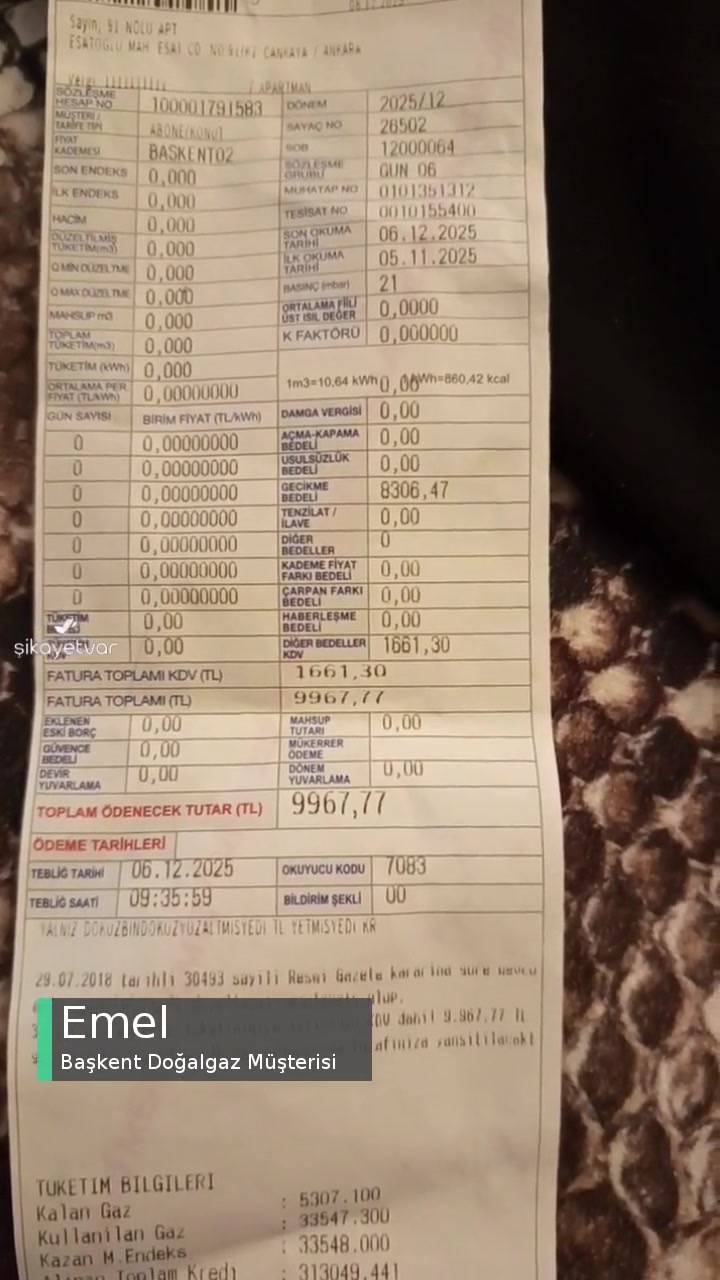 Sayin, 91 NOLU APT
ESATOGLU MAH. ESAT CD. NO 91/K2 CANKAYA / ANKARA
Vergi 1111111111 / APARTMAN
SÖZLEŞME HESAP NO 100001791583 DÖNEM 2025/12
MÜŞTERİ / TARİFE TİPİ ABONE/KONUT SAYAÇ NO 26502
FİYAT KADEMESİ BASKENT02 SOB 12000064
SON ENDEKS 0,000 SÖZLEŞME GRUBU GUN 06
İLK ENDEKS 0,000 MUHATAP NO 0101351312
HACİM 0,000 TESİSAT NO 0010155400
DÜZELTİLMİŞ TÜKETİM(m3) 0,000 SON OKUMA TARİHİ 06.12.2025
Q MİN DÜZELTME 0,000 İLK OKUMA TARİHİ 05.11.2025
Q MAX DÜZELTME 0,000 BASINÇ (mbar) 21
MAHSUP m3 0,000 ORTALAMA FİİLİ ÜST ISIL DEĞER 0,0000
TOPLAM TÜKETİM(m3) 0,000 K FAKTÖRÜ 0,000000
TÜKETİM (kWh) 0,000
ORTALAMA PER. FİYAT (TL/kWh) 0,00000000 1m3=10,64 kWh 0,00 kWh=860,42 kcal
GÜN SAYISI BİRİM FİYAT (TL/kWh) DAMGA VERGİSİ 0,00
0 0,00000000 AÇMA-KAPAMA BEDELİ 0,00
0 0,00000000 USULSÜZLÜK BEDELİ 0,00
0 0,00000000 GECİKME BEDELİ 8306,47
0 0,00000000 TENZİLAT / İLAVE 0,00
0 0,00000000 DİĞER BEDELLER 0
0 0,00000000 KADEME FİYAT FARKI BEDELİ 0,00
0 0,00000000 ÇARPAN FARKI BEDELİ 0,00
TÜKETİM 0,00 HABERLEŞME BEDELİ 0,00
şikayetvar
0,00 DİĞER BEDELLER KDV 1661,30
FATURA TOPLAMI KDV (TL) 1661,30
FATURA TOPLAMI (TL) 9967,77
EKLENEN ESKİ BORÇ 0,00 MAHSUP TUTARI 0,00
GÜVENCE BEDELİ 0,00 MÜKERRER ÖDEME
DEVİR YUVARLAMA 0,00 DÖNEM YUVARLAMA 0,00
TOPLAM ÖDENECEK TUTAR (TL) 9967,77
ÖDEME TARİHLERİ
TEBLİĞ TARİHİ 06.12.2025 OKUYUCU KODU 7083
TEBLİĞ SAATİ 09:35:59 BİLDİRİM ŞEKLİ 00
YALNIZ DOKUZBINDOKUZYUZALTMISYEDI TL YETMISYEDI KR
29.07.2018 tarihli 30493 sayili Resmi Gazete kararina
olup.
KDV dahil 9.967,77 TL
Emel
Başkent Doğalgaz Müşterisi
TUKETIM BILGILERI
Kalan Gaz : 5307.100
Kullanilan Gaz : 33547.300
Kazan M.Endeks : 33548.000
Alinan Toplam Kredi : 313049.441